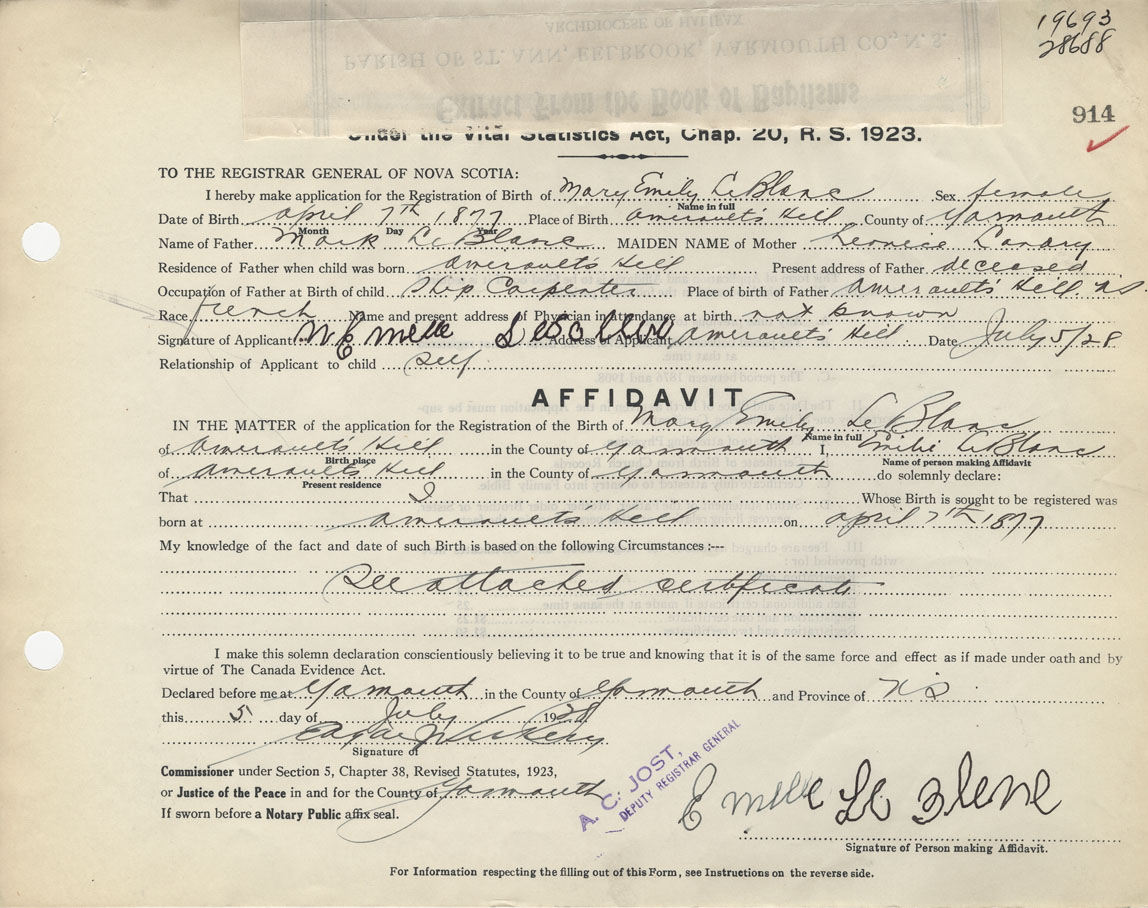 19693
28688
ARCHDIOCESE OF HALIFAX
PARISH OF ST. ANN, EELBROOK, YARMOUTH CO., N. S.
Extract From the Book of Baptisms
914
Under the Vital Statistics Act, Chap. 20, R. S. 1923.
TO THE REGISTRAR GENERAL OF NOVA SCOTIA:
I hereby make application for the Registration of Birth of Mary Emily LeBlanc Sex female
Name in full
Date of Birth april 7th 1877 Place of Birth amerault's Hill County of Yarmouth
Month Day Year
Name of Father Mark LeBlanc MAIDEN NAME of Mother Leonice Landry
Residence of Father when child was born amerault's Hill Present address of Father deceased
Occupation of Father at Birth of child Ship Carpenter Place of Birth of Father amerault's Hill NS
Race french Name and present address of Physician in attendance at birth not known
Signature of Applicant Address of Applicant amerault's Hill Date July 5/28
Relationship of Applicant to child Self
AFFIDAVIT
IN THE MATTER of the application for the Registration of the Birth of Mary Emily LeBlanc
Name in full
of amerault's Hill in the County of Yarmouth I, Emilie LeBlanc
Birth place Name of person making Affidavit
of amerault's Hill in the County of Yarmouth do solemnly declare:
Present residence
That I Whose Birth is sought to be registered was
born at amerault's Hill on april 7th 1877
My knowledge of the fact and date of such Birth is based on the following Circumstances :---
See attached certificate
I make this solemn declaration conscientiously believing it to be true and knowing that it is of the same force and effect as if made under oath and by
virtue of The Canada Evidence Act.
Declared before me at Yarmouth in the County of Yarmouth and Province of NS
this 5 day of July 1928
Signature of
Commissioner under Section 5, Chapter 38, Revised Statutes, 1923,
or Justice of the Peace in and for the County of Yarmouth
If sworn before a Notary Public affix seal.
A. C. JOST,
DEPUTY REGISTRAR GENERAL
Emelie Le Blene
Signature of Person making Affidavit.
For Information respecting the filling out of this Form, see Instructions on the reverse side.